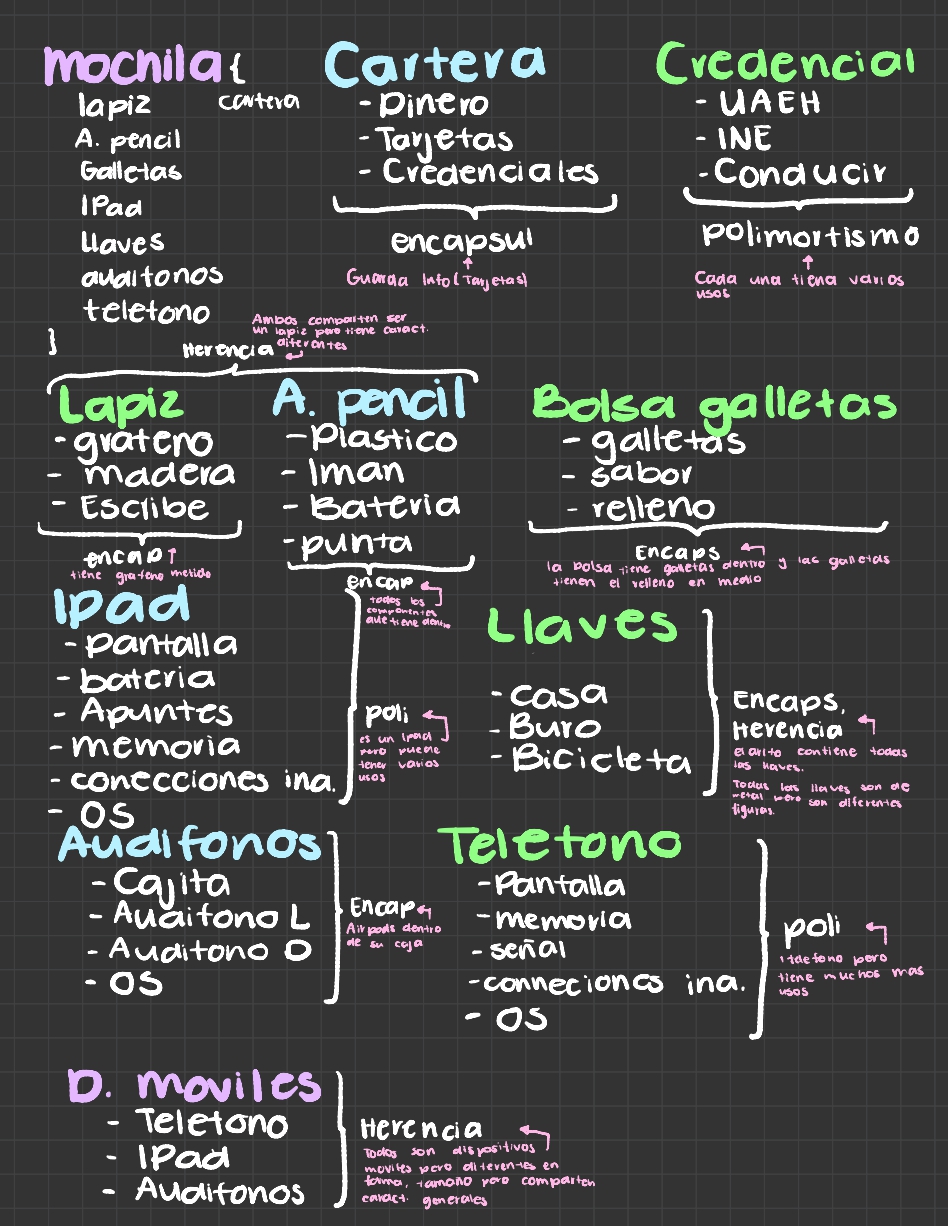 mochila {
lapiz cartera
A. pencil
Galletas
IPad
Llaves
audifonos
telefono
}
Cartera
- Dinero
- Tarjetas
- Credenciales
encapsul
Guarda Info (Tarjetas)
Credencial
- UAEH
- INE
- Conducir
polimorfismo
Cada una tiena varios
usos
Ambos comparten ser
un lapiz pero tiene caract.
diferentes
Herencia
Lapiz
- grafeno
- madera
- Escribe
encap
tiene grafeno metido
A. pencil
- Plastico
- Iman
- Bateria
- punta
encap
todos los
componentes
que tiene dentro
Bolsa galletas
- galletas
- sabor
- relleno
Encaps
la bolsa tiene galletas dentro y las galletas
tienen el relleno en medio
Ipad
- pantalla
- bateria
- Apuntes
- memoria
- conecciones ina.
- OS
poli
es un Ipad
pero puede
tener varios
usos
Llaves
- casa
- Buro
- Bicicleta
Encaps,
Herencia
el arito contiene todas
las llaves.
Todas las llaves son de
metal pero son diferentes
figuras.
Audifonos
- Cajita
- Audifono L
- Audifono D
- OS
Encap
Airpods dentro
de su caja
Telefono
- Pantalla
- memoria
- señal
- conneciones ina.
- OS
poli
1 telefono pero
tiene muchos mas
usos
D. moviles
- Telefono
- IPad
- Audifonos
Herencia
Todos son dispositivos
moviles pero diferentes en
forma, tamaño pero comparten
caract. generales